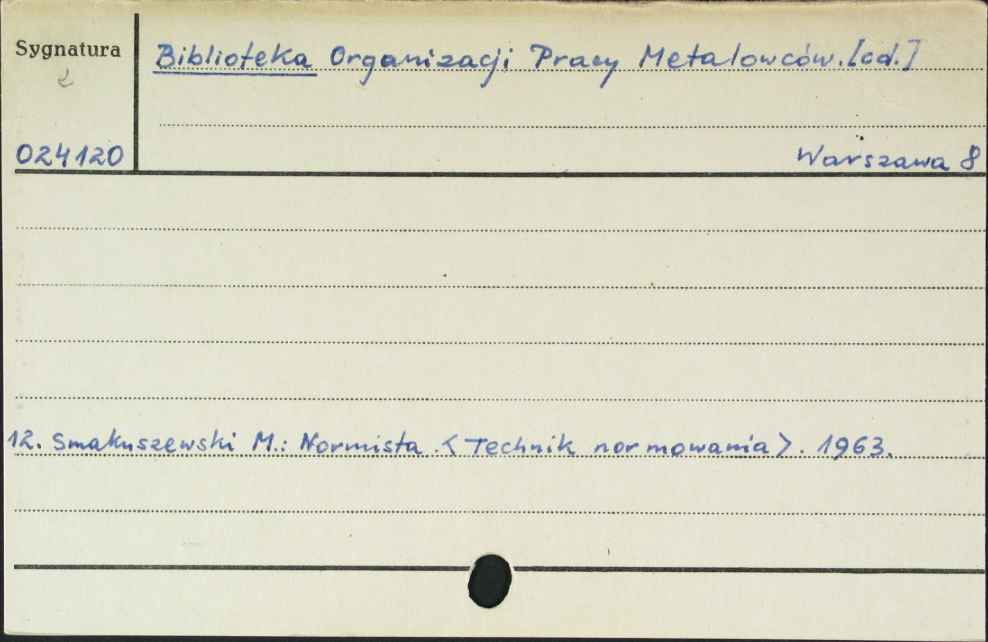 Sygnatura
Biblioteka Organizacji Pracy Metalowców. [cd.]
024120
Warszawa 8
12. Smakuszewski M.: Normista. <Technik normowania>. 1963.